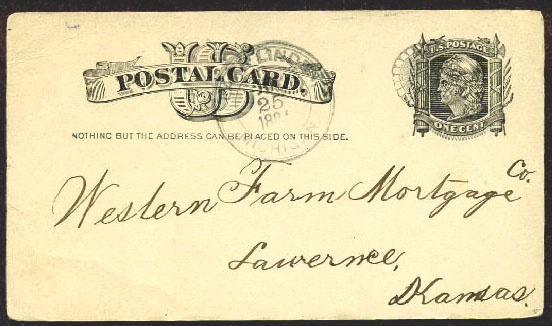 US
POSTAL CARD.
U.S. POSTAGE
ONE CENT
25
NOTHING BUT THE ADDRESS CAN BE PLACED ON THIS SIDE.
Western Farm Mortgage Co.
Lawrence,
Kansas.